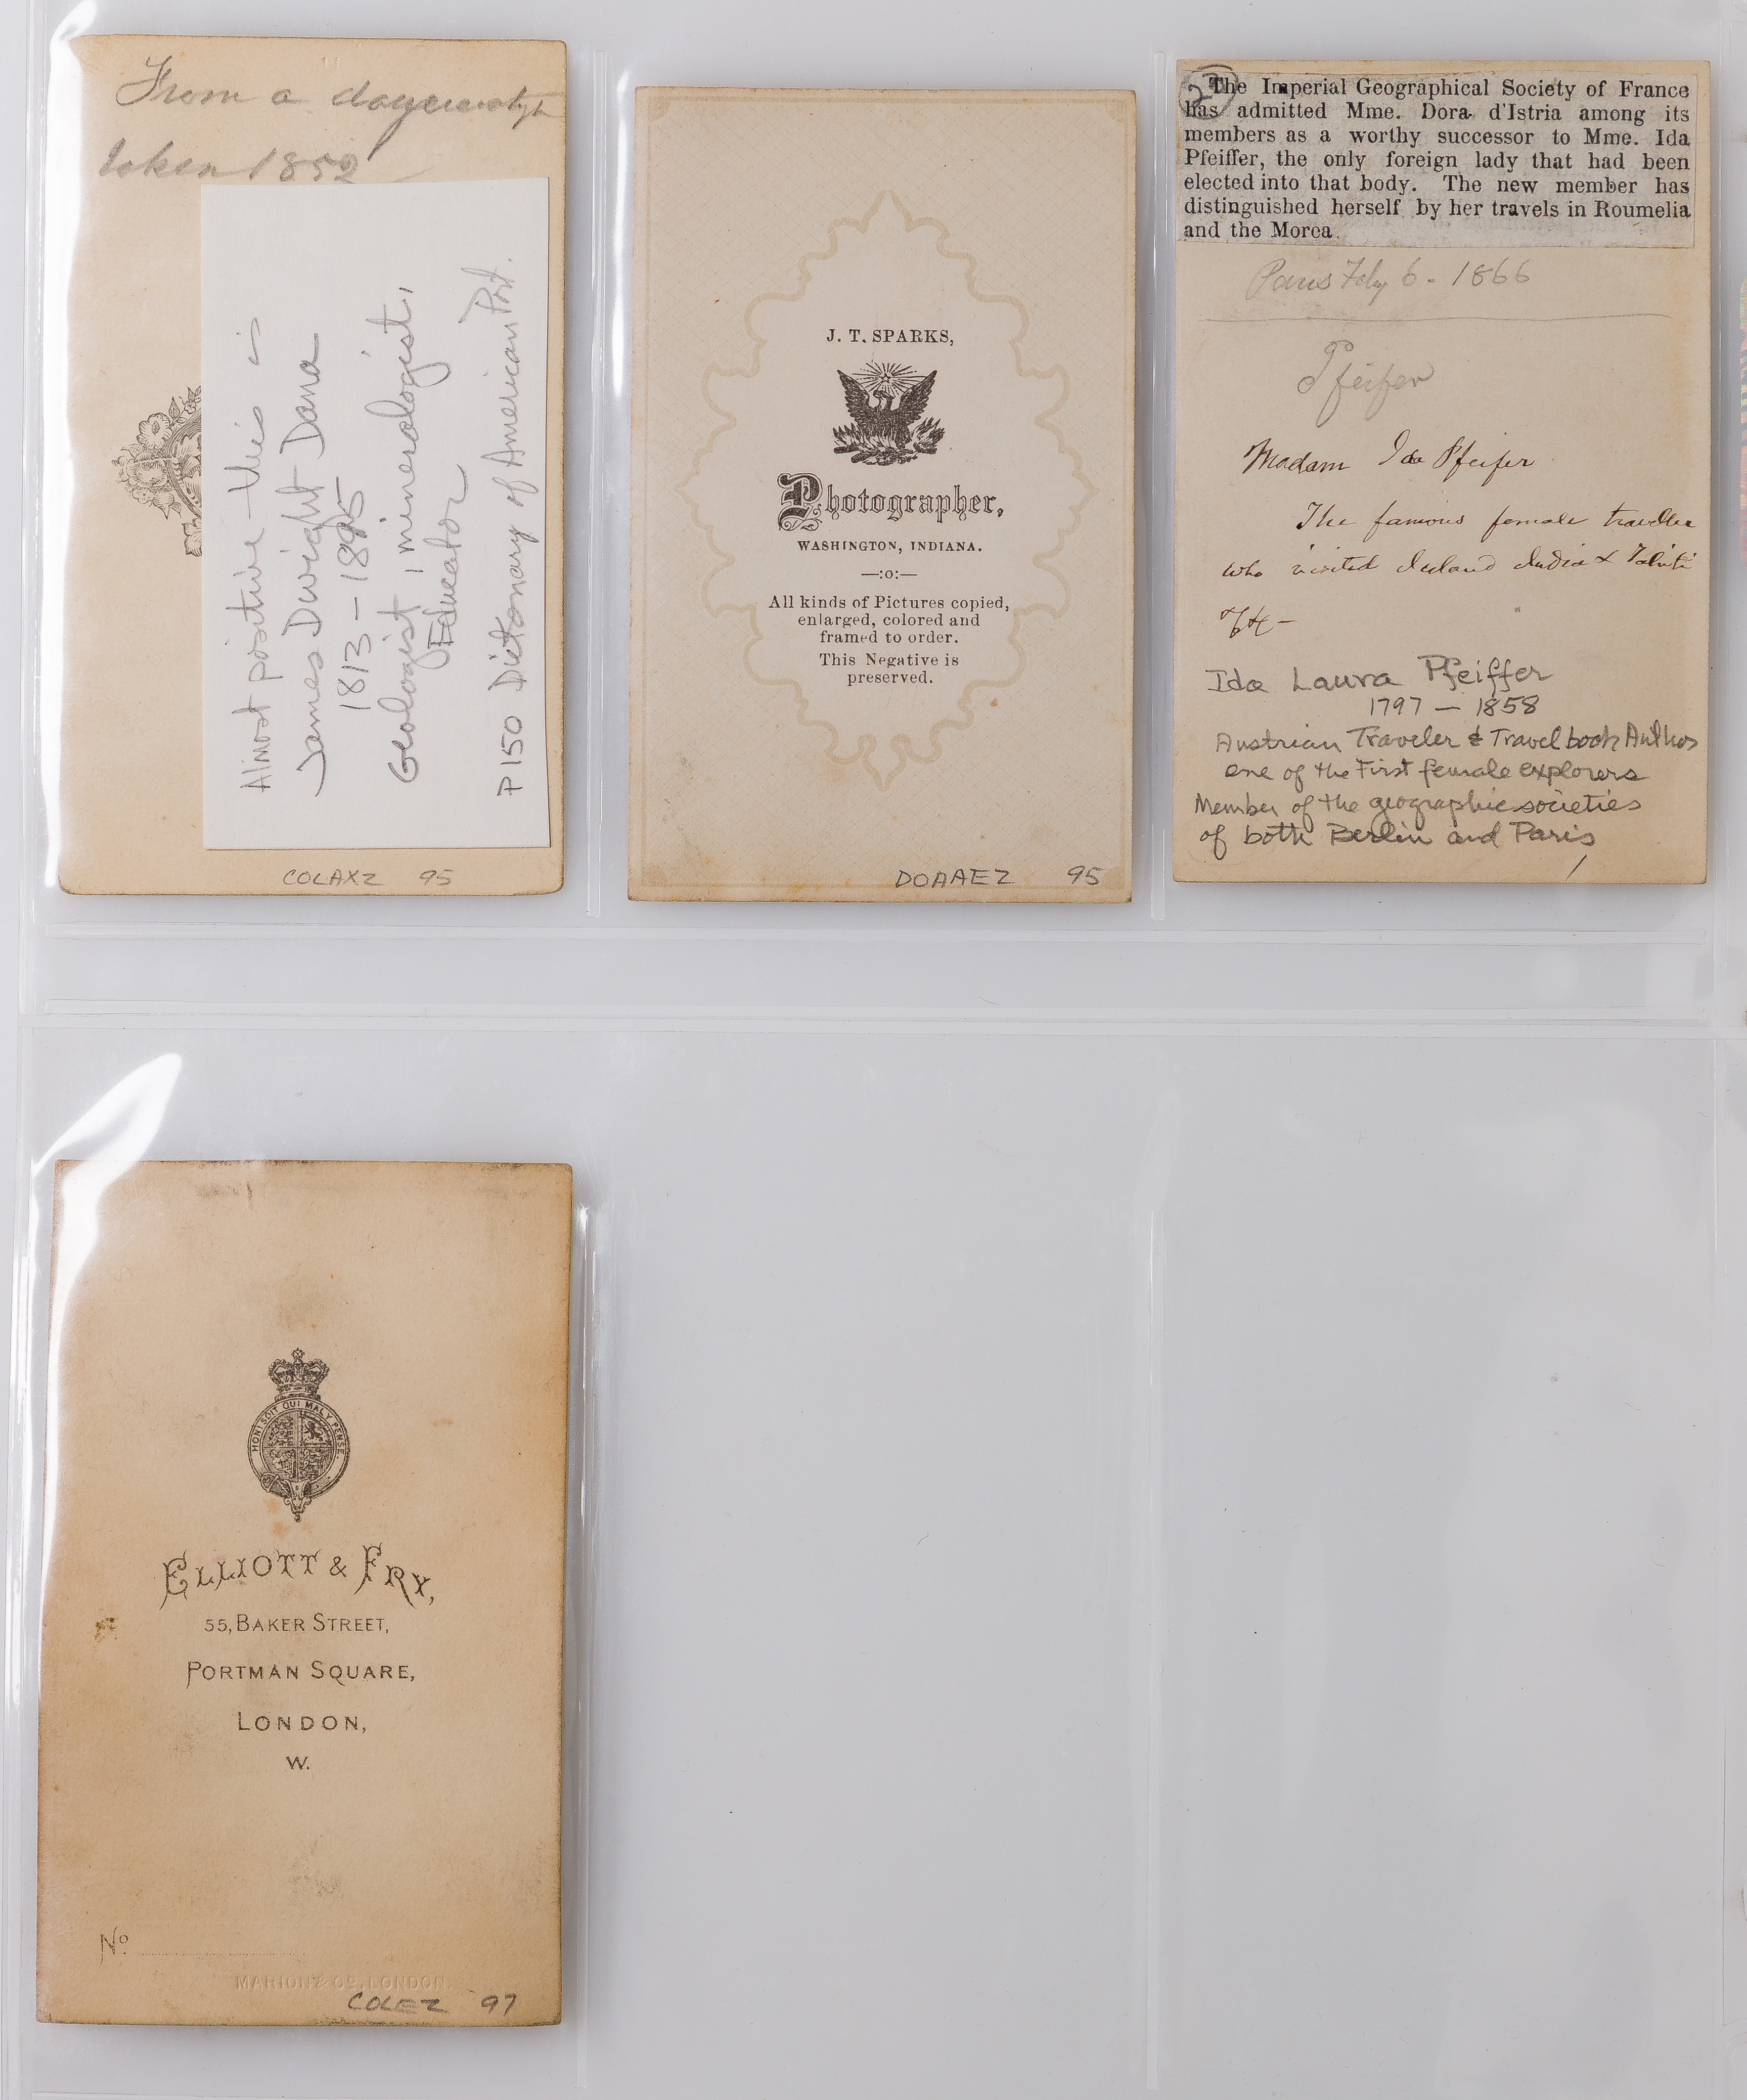 From a daguerreotyp
taken 1852
Almost positive this is
James Dwight Dana
1813 - 1895
Geologist, mineralogist,
Educator
P150 Dictionary of American Port.
COLAXZ 95
J. T. SPARKS,
Photographer,
WASHINGTON, INDIANA.
—:o:—
All kinds of Pictures copied,
enlarged, colored and
framed to order.
This Negative is
preserved.
DOAAEZ 95
2
The Imperial Geographical Society of France
has admitted Mme. Dora d'Istria among its
members as a worthy successor to Mme. Ida
Pfeiffer, the only foreign lady that had been
elected into that body. The new member has
distinguished herself by her travels in Roumelia
and the Morea.
Paris Feby 6 - 1866
Pfeifer
Madam Ida Pfeifer
The famous female traveller
who visited Iceland India & Tahiti
Ida Laura Pfeiffer
1797 - 1858
Austrian Traveler & Travel book Author
one of the First female explorers
Member of the geographic societies
of both Berlin and Paris
HONI SOIT QUI MAL Y PENSE
ELLIOTT & FRY,
55, BAKER STREET,
PORTMAN SQUARE,
LONDON,
W.
No.
MARION & CO. LONDON.
COLEZ 97